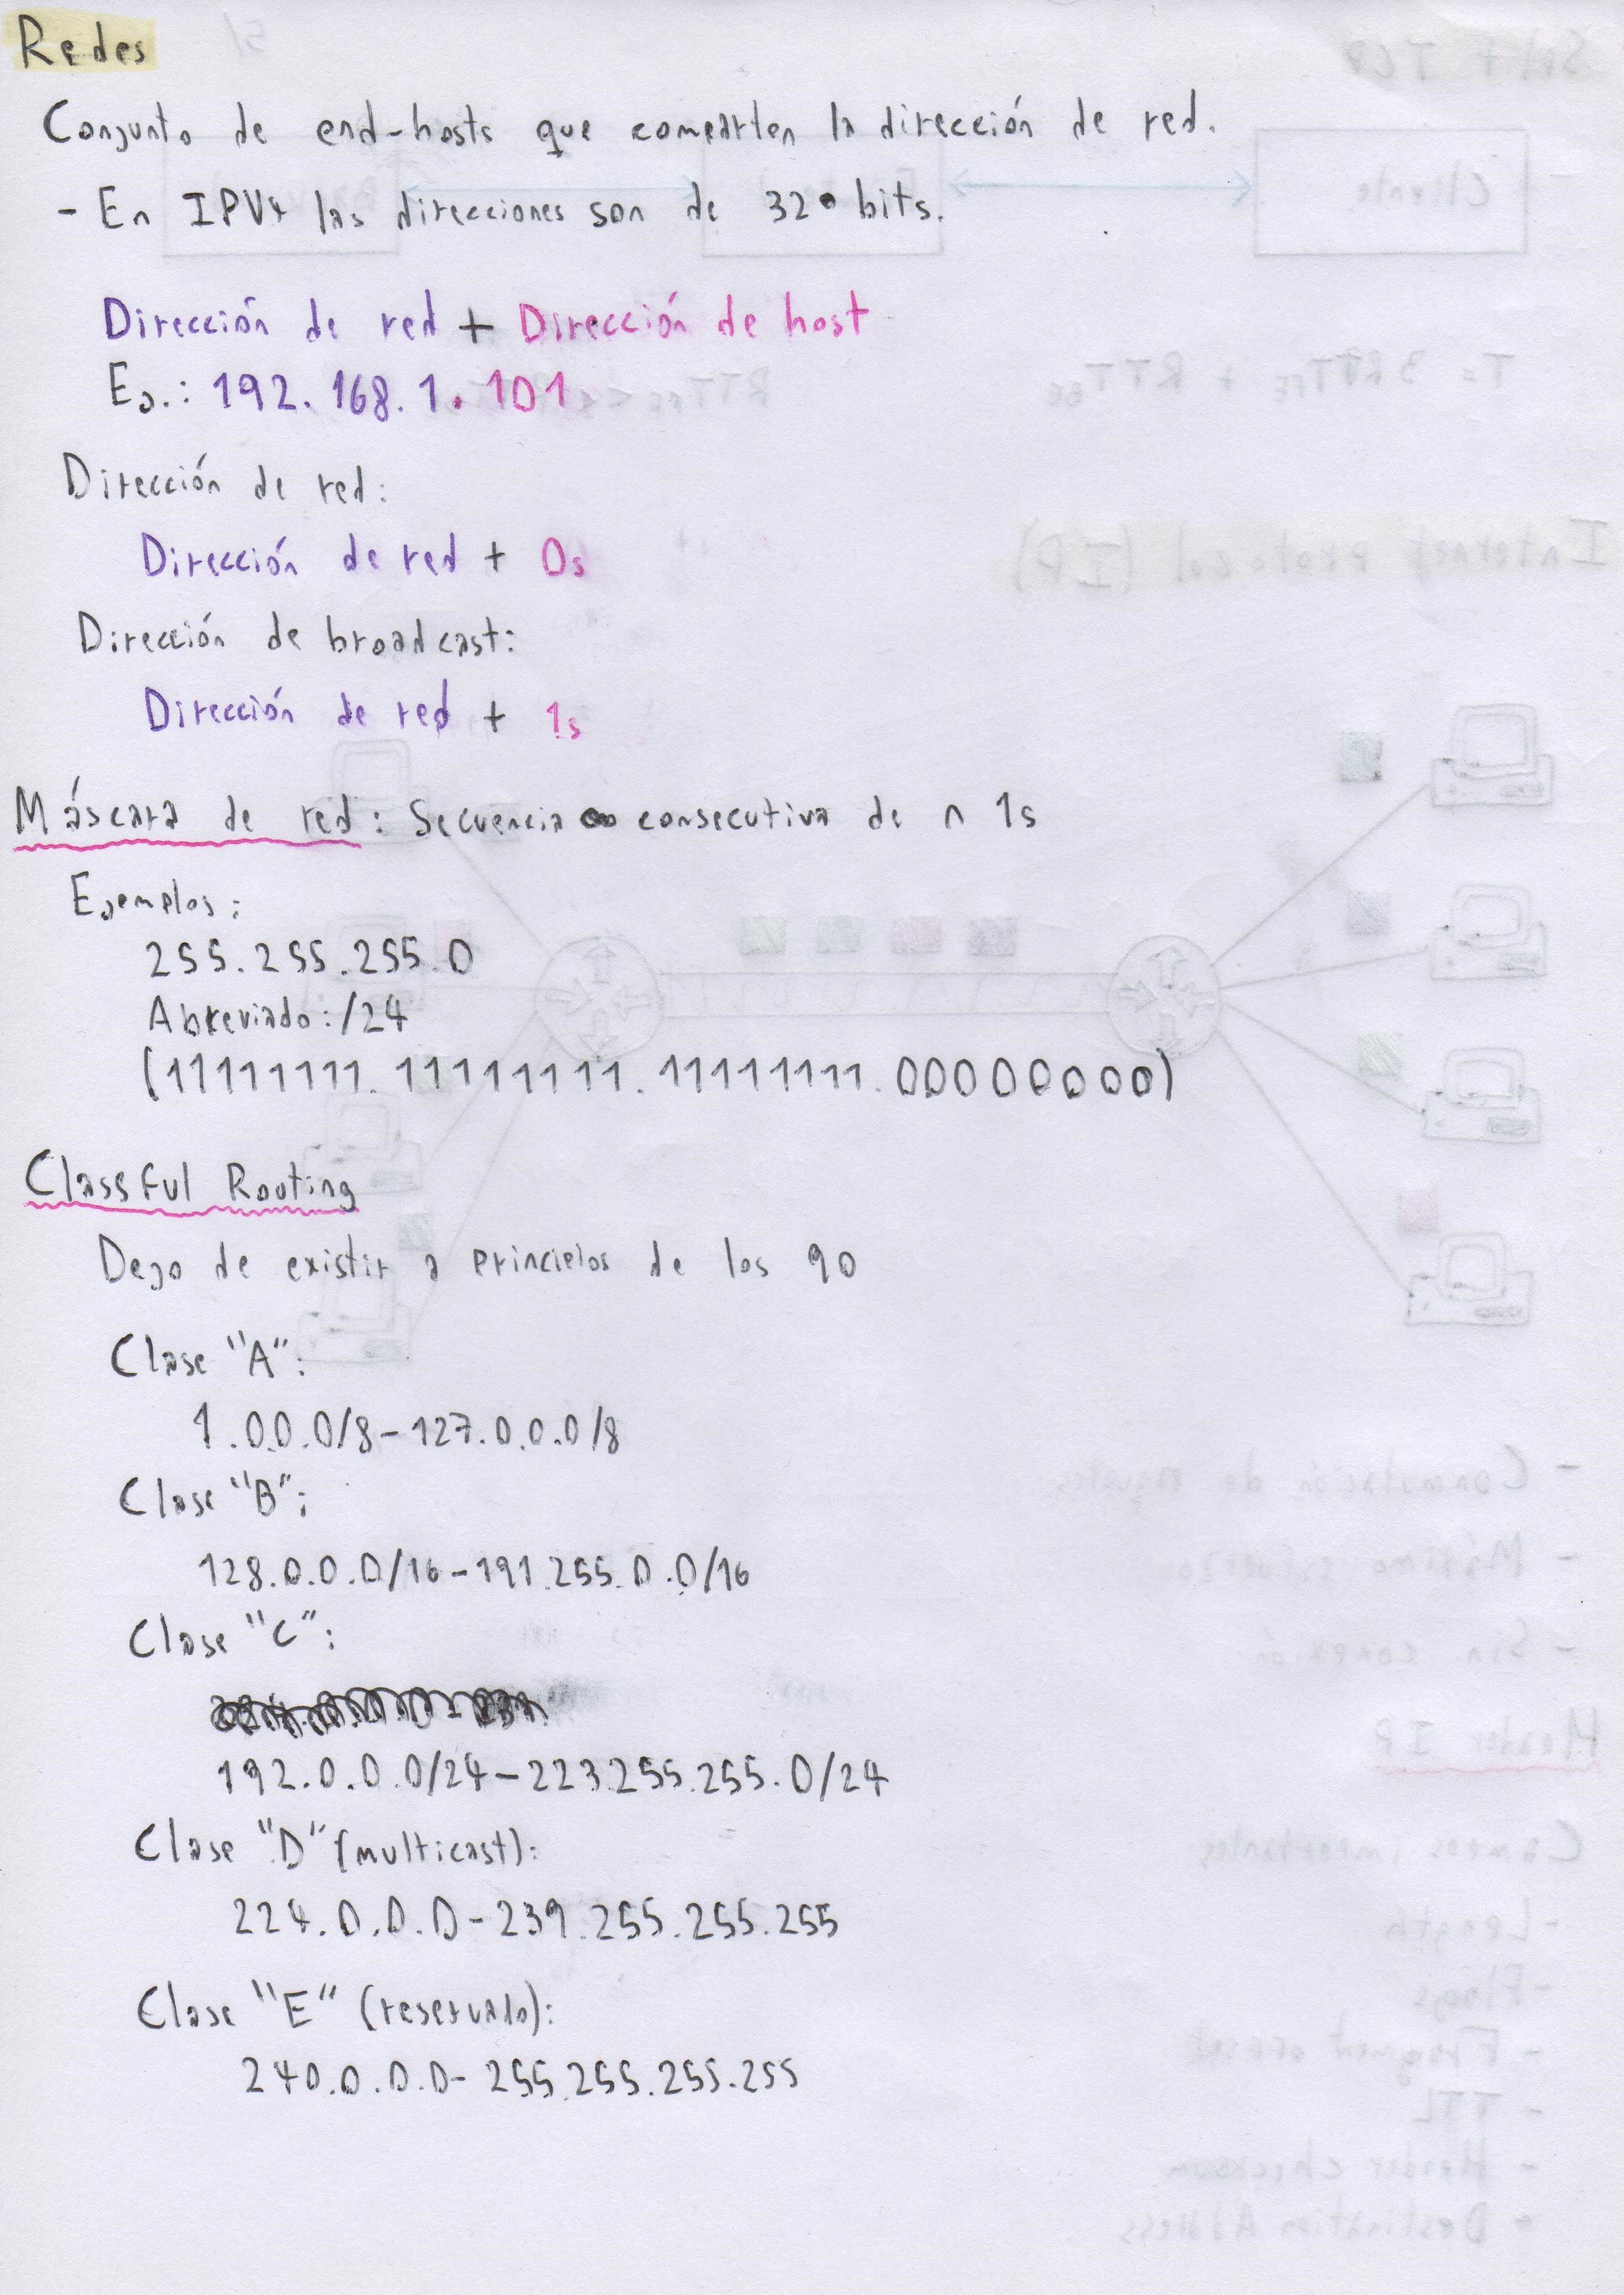 Redes
Conjunto de end-hosts que comparten la dirección de red.
- En IPV4 las direcciones son de 32 bits.
Dirección de red + Dirección de host
Ej.: 192.168.1.101
Dirección de red:
Dirección de red + 0s
Dirección de broadcast:
Dirección de red + 1s
Máscara de red: Secuencia consecutiva de n 1s
Ejemplos:
255.255.255.0
Abreviado: /24
(11111111.11111111.11111111.00000000)
Classful Routing
Dejo de existir a principios de los 90
Clase "A":
1.0.0.0/8-127.0.0.0/8
Clase "B":
128.0.0.0/16-191.255.0.0/16
Clase "C":
192.0.0.0/24-223.255.255.0/24
Clase "D" (multicast):
224.0.0.0-239.255.255.255
Clase "E" (reservado):
240.0.0.0-255.255.255.255